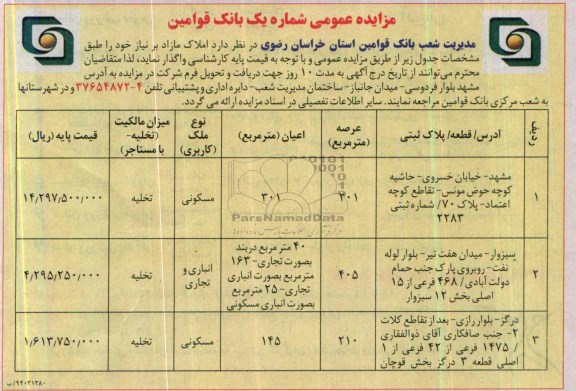 مزایده عمومی شماره یک بانک قوامین
مدیریت شعب بانک قوامین استان خراسان رضوی در نظر دارد املاک مازاد بر نیاز خود را طبق
مشخصات جدول زیر از طریق مزایده عمومی و با توجه به قیمت پایه کارشناسی واگذار نماید، لذا متقاضیان
محترم می‌توانند از تاریخ درج آگهی به مدت ۱۰ روز جهت دریافت و تحویل فرم شرکت در مزایده به آدرس
مشهد بلوار فردوسی- میدان جانباز- ساختمان مدیریت شعب- دایره اداری و پشتیبانی تلفن ۴-۳۷۶۵۴۸۷۲ و در شهرستانها
به شعب مرکزی بانک قوامین مراجعه نمایند. سایر اطلاعات تفصیلی در اسناد مزایده ارائه می گردد.
ردیف
آدرس/ قطعه/ پلاک ثبتی
عرصه
(مترمربع)
اعیان (مترمربع)
نوع
ملک
(کاربری)
میزان مالکیت
(تخلیه-
با مستاجر)
قیمت پایه (ریال)
۱
مشهد- خیابان خسروی- حاشیه
کوچه حوض مونس- تقاطع کوچه
اعتماد- پلاک ۷۰/ شماره ثبتی
۲۲۸۳
۳۰۱
۳۰۱
مسکونی
تخلیه
۱۴/۲۹۷/۵۰۰/۰۰۰
۲
سبزوار- میدان هفت تیر- بلوار لوله
نفت- روبروی پارک جنب حمام
دولت آبادی/ ۴۶۸ فرعی از ۱۵
اصلی بخش ۱۲ سبزوار
۴۰۵
۴۰ متر مربع دربند
بصورت تجاری- ۱۶۳
مترمربع بصورت انباری
تجاری- ۲۵ مترمربع
بصورت انباری مسکونی
انباری و
تجاری
تخلیه
۴/۲۹۵/۲۵۰/۰۰۰
۳
درگز- بلوار رازی- بعد از تقاطع کلات
۲- جنب صافکاری آقای ذوالفقاری
/ ۱۴۷۵ فرعی از ۴۲ فرعی از ۱
اصلی قطعه ۳ درگز بخش قوچان
۲۱۰
۱۴۵
مسکونی
تخلیه
۱/۶۱۳/۷۵۰/۰۰۰
ParsNamadData
۹۴۰۳۱۳۸۰/ب